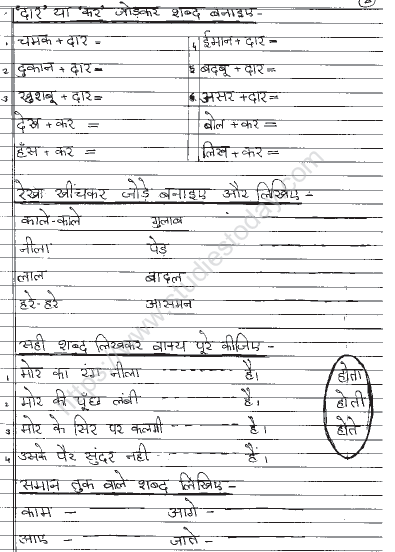 'दार' या 'कर' जोड़कर शब्द बनाइए-
1 चमक + दार = 4 ईमान + दार =
2 दुकान + दार = 5 बदबू + दार =
3 खुशबू + दार = 6 असर + दार =
देख + कर = बोल + कर =
हँस + कर = लिख + कर =
रेखा खींचकर जोड़े बनाइए और लिखिए -
काले-काले गुलाब
नीला पेड़
लाल बादल
हरे-हरे आसमन
सही शब्द लिखकर वाक्य पूरे कीजिए -
1 मोर का रंग नीला है। होता
2 मोर की पूंछ लंबी है। होती
3 मोर के सिर पर कलगी है। होते
4 उसके पैर सुंदर नहीं हैं।
समान तुक वाले शब्द लिखिए -
काम - आगे -
आए - जाते -
https://www.studiestoday.com